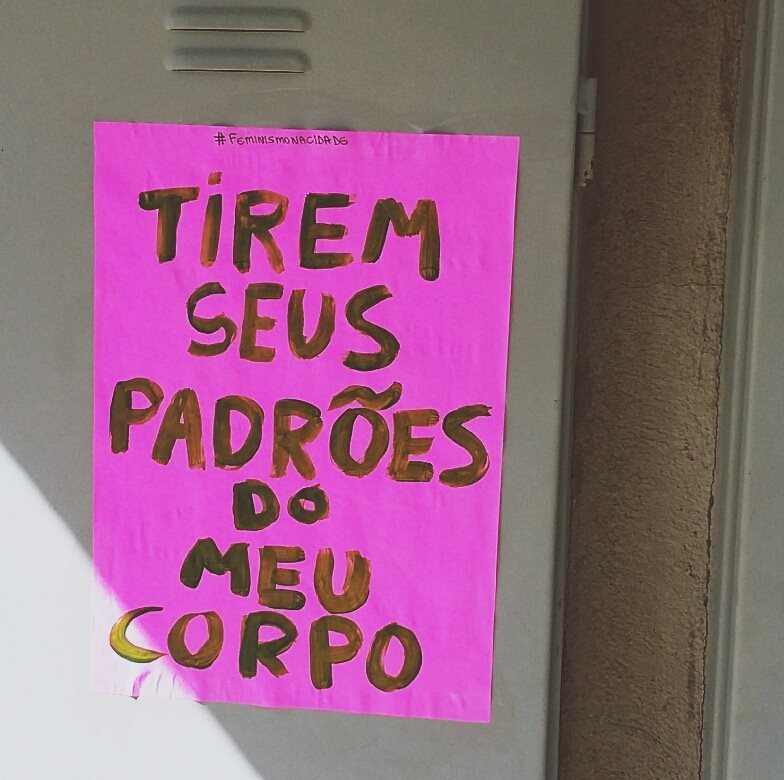 #FEMINISMONACIDADE
TIREM
SEUS
PADRÕES
DO
MEU
CORPO